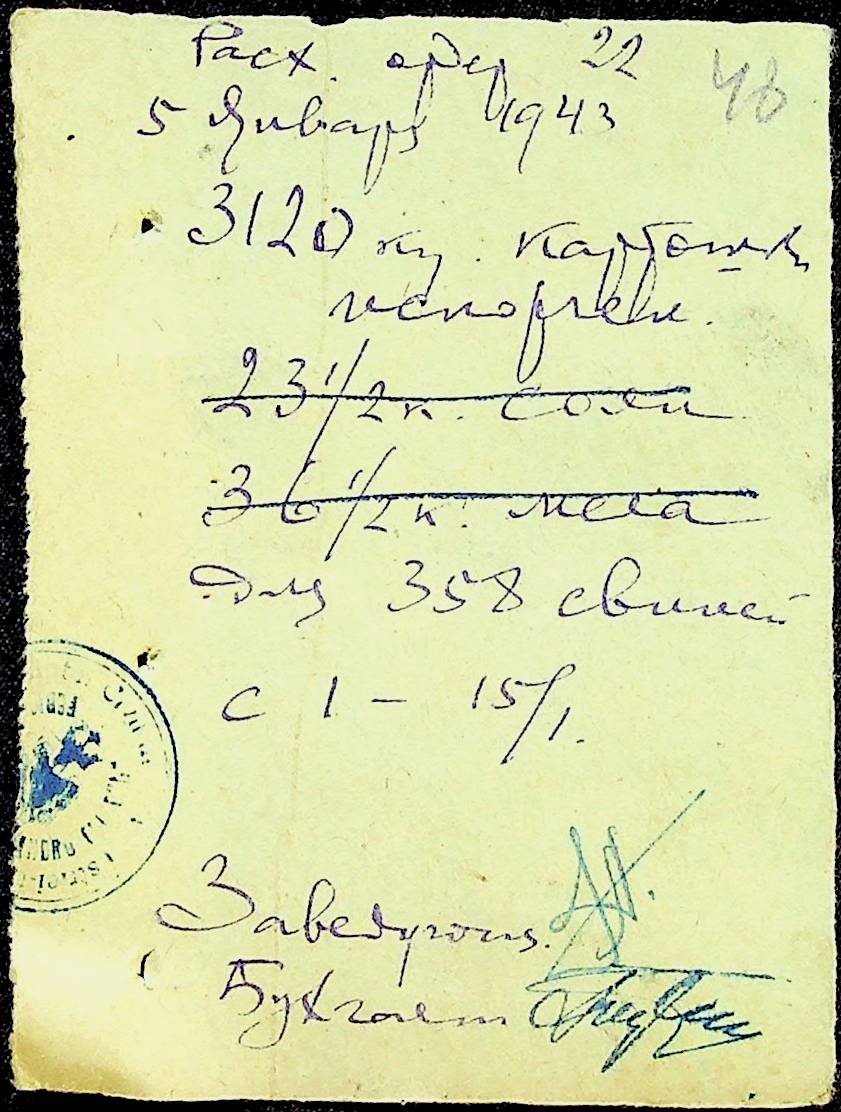 Расх. ордер 22
48
5 Января 1943
3120 кг. картошки
испорчен.
23 1/2 к. соли
36 1/2 к. мела
для 358 свиней
с 1 – 15/1.
Заведующ.
Бухгалт